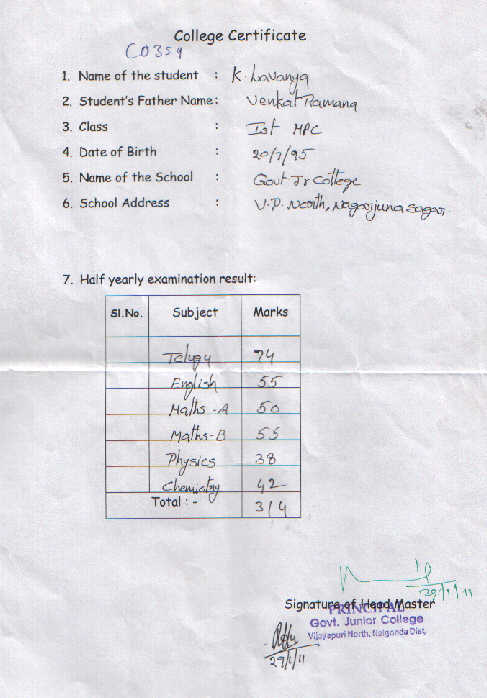 College Certificate
CD359
1. Name of the student : K. Lavanya
2. Student's Father Name: Venkat Ramana
3. Class : Ist MPC
4. Date of Birth : 20/7/95
5. Name of the School : Govt Jr College
6. School Address : V.P. North, Nagarjuna Sagar.
7. Half yearly examination result:
Sl.No. Subject Marks
Telugu 74
English 55
Maths - A 50
Maths - B 55
Physics 38
Chemistry 42
Total : - 314
29/1/11
Signature of Head Master
PRINCIPAL
Govt. Junior College
Vijayapuri North, Nalgonda Dist.
29/1/11